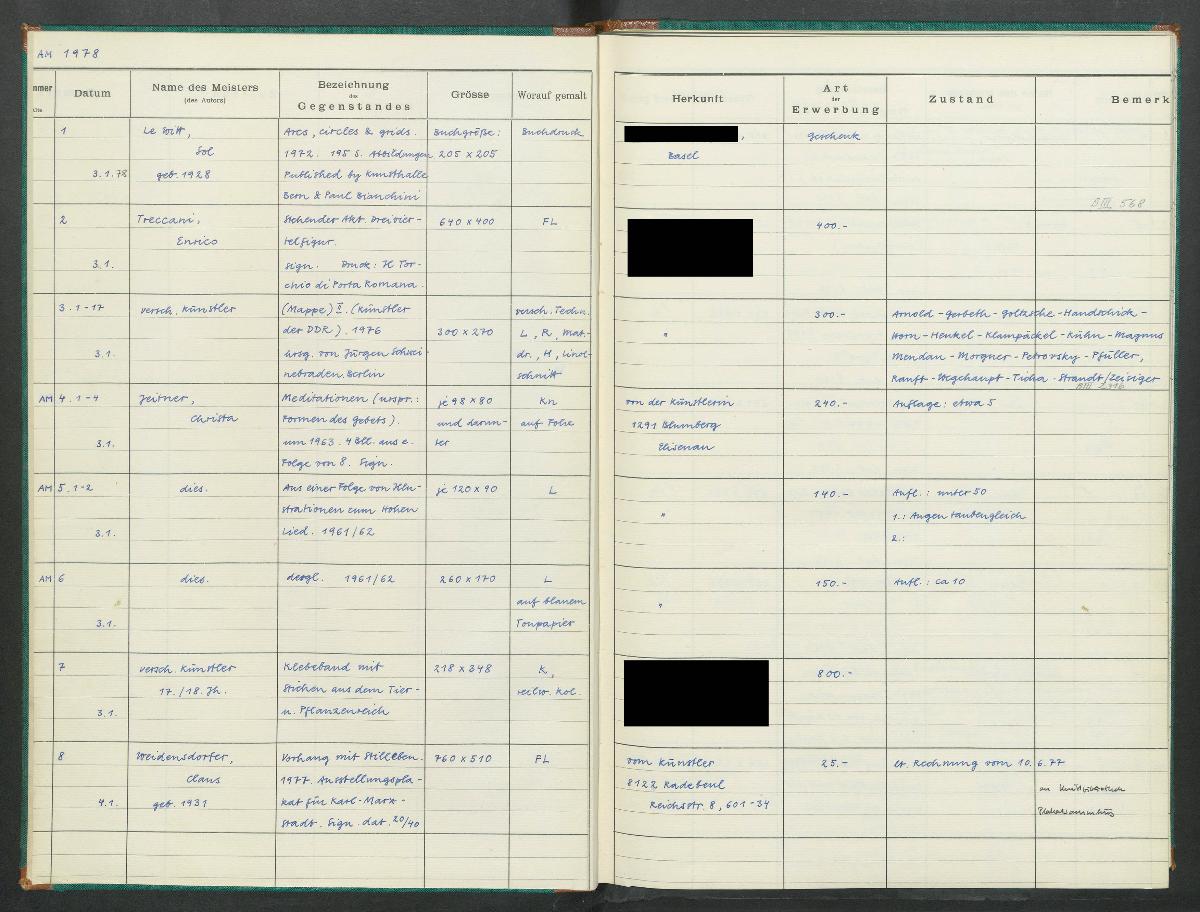 AM 1978
mmer
Datum
Name des Meisters
(des Autors)
Bezeichnung
des
Gegenstandes
Grösse
Worauf gemalt
1
Le Witt,
Arcs, circles & grids.
Buchgröße:
Buchdruck
Sol
1972. 195 S. Abbildungen
205 x 205
3.1.78
geb. 1928
Published by Kunsthalle
Bern & Paul Bianchini
2
Treccani,
Stehender Akt. Dreivier-
640 x 400
FL
Enrico
telfigur.
3.1.
sign. Druck: Il Tor-
chio di Porta Romana.
3.1-17
versch. Künstler
(Mappe) II. (Künstler
versch. Techn.
der DDR). 1976
300 x 270
L, R, Mat.-
3.1.
hrsg. von Jürgen Schwei-
dr., H, Linol-
nebraden. Berlin
schnitt
AM 4.1-4
Zeitner,
Meditationen (urspr.:
je 98 x 80
Kn
Christa
Formen des Gebets).
und darun-
auf Folie
3.1.
um 1963. 4 Bll. aus e.
ter
Folge von 8. Sign.
AM 5.1-2
dies.
Aus einer Folge von Illu-
je 120 x 90
L
strationen zum Hohen
3.1.
Lied. 1961/62
AM 6
dies.
desgl. 1961/62
260 x 170
L
auf blauem
3.1.
Tonpapier
7
versch. Künstler
Klebeband mit
218 x 348
K,
17./18. Jh.
Stichen aus dem Tier-
teilw. kol.
3.1.
u. Pflanzenreich
8
Weidensdorfer,
Vorhang mit Stilleben.
760 x 510
FL
Claus
1977. Ausstellungspla-
4.1.
geb. 1931
kat für Karl-Marx-
stadt. Sign. dat. 20/40
Herkunft
Art
der
Erwerbung
Zustand
Bemerk
,
Geschenk
Basel
B III 568
400.-
300.-
Arnold - Gerbeth - Goltzsche - Handschick -
"
Horn - Henkel - Klampäckel - Kühn - Magnus
Mendau - Morgner - Petrovsky - Pfüller,
Ranft - Wegehaupt - Ticha - Strandt/Zeisiger
von der Künstlerin
240.-
Auflage: etwa 5
1291 Blumberg
Elisenau
140.-
Aufl.: unter 50
"
1.: Augen taubengleich
2.:
150.-
Aufl.: ca 10
"
800.-
vom Künstler
25.-
lt. Rechnung vom 10.6.77
8122 Radebeul
Reichsstr. 8, 601-34
Plakatsammlung